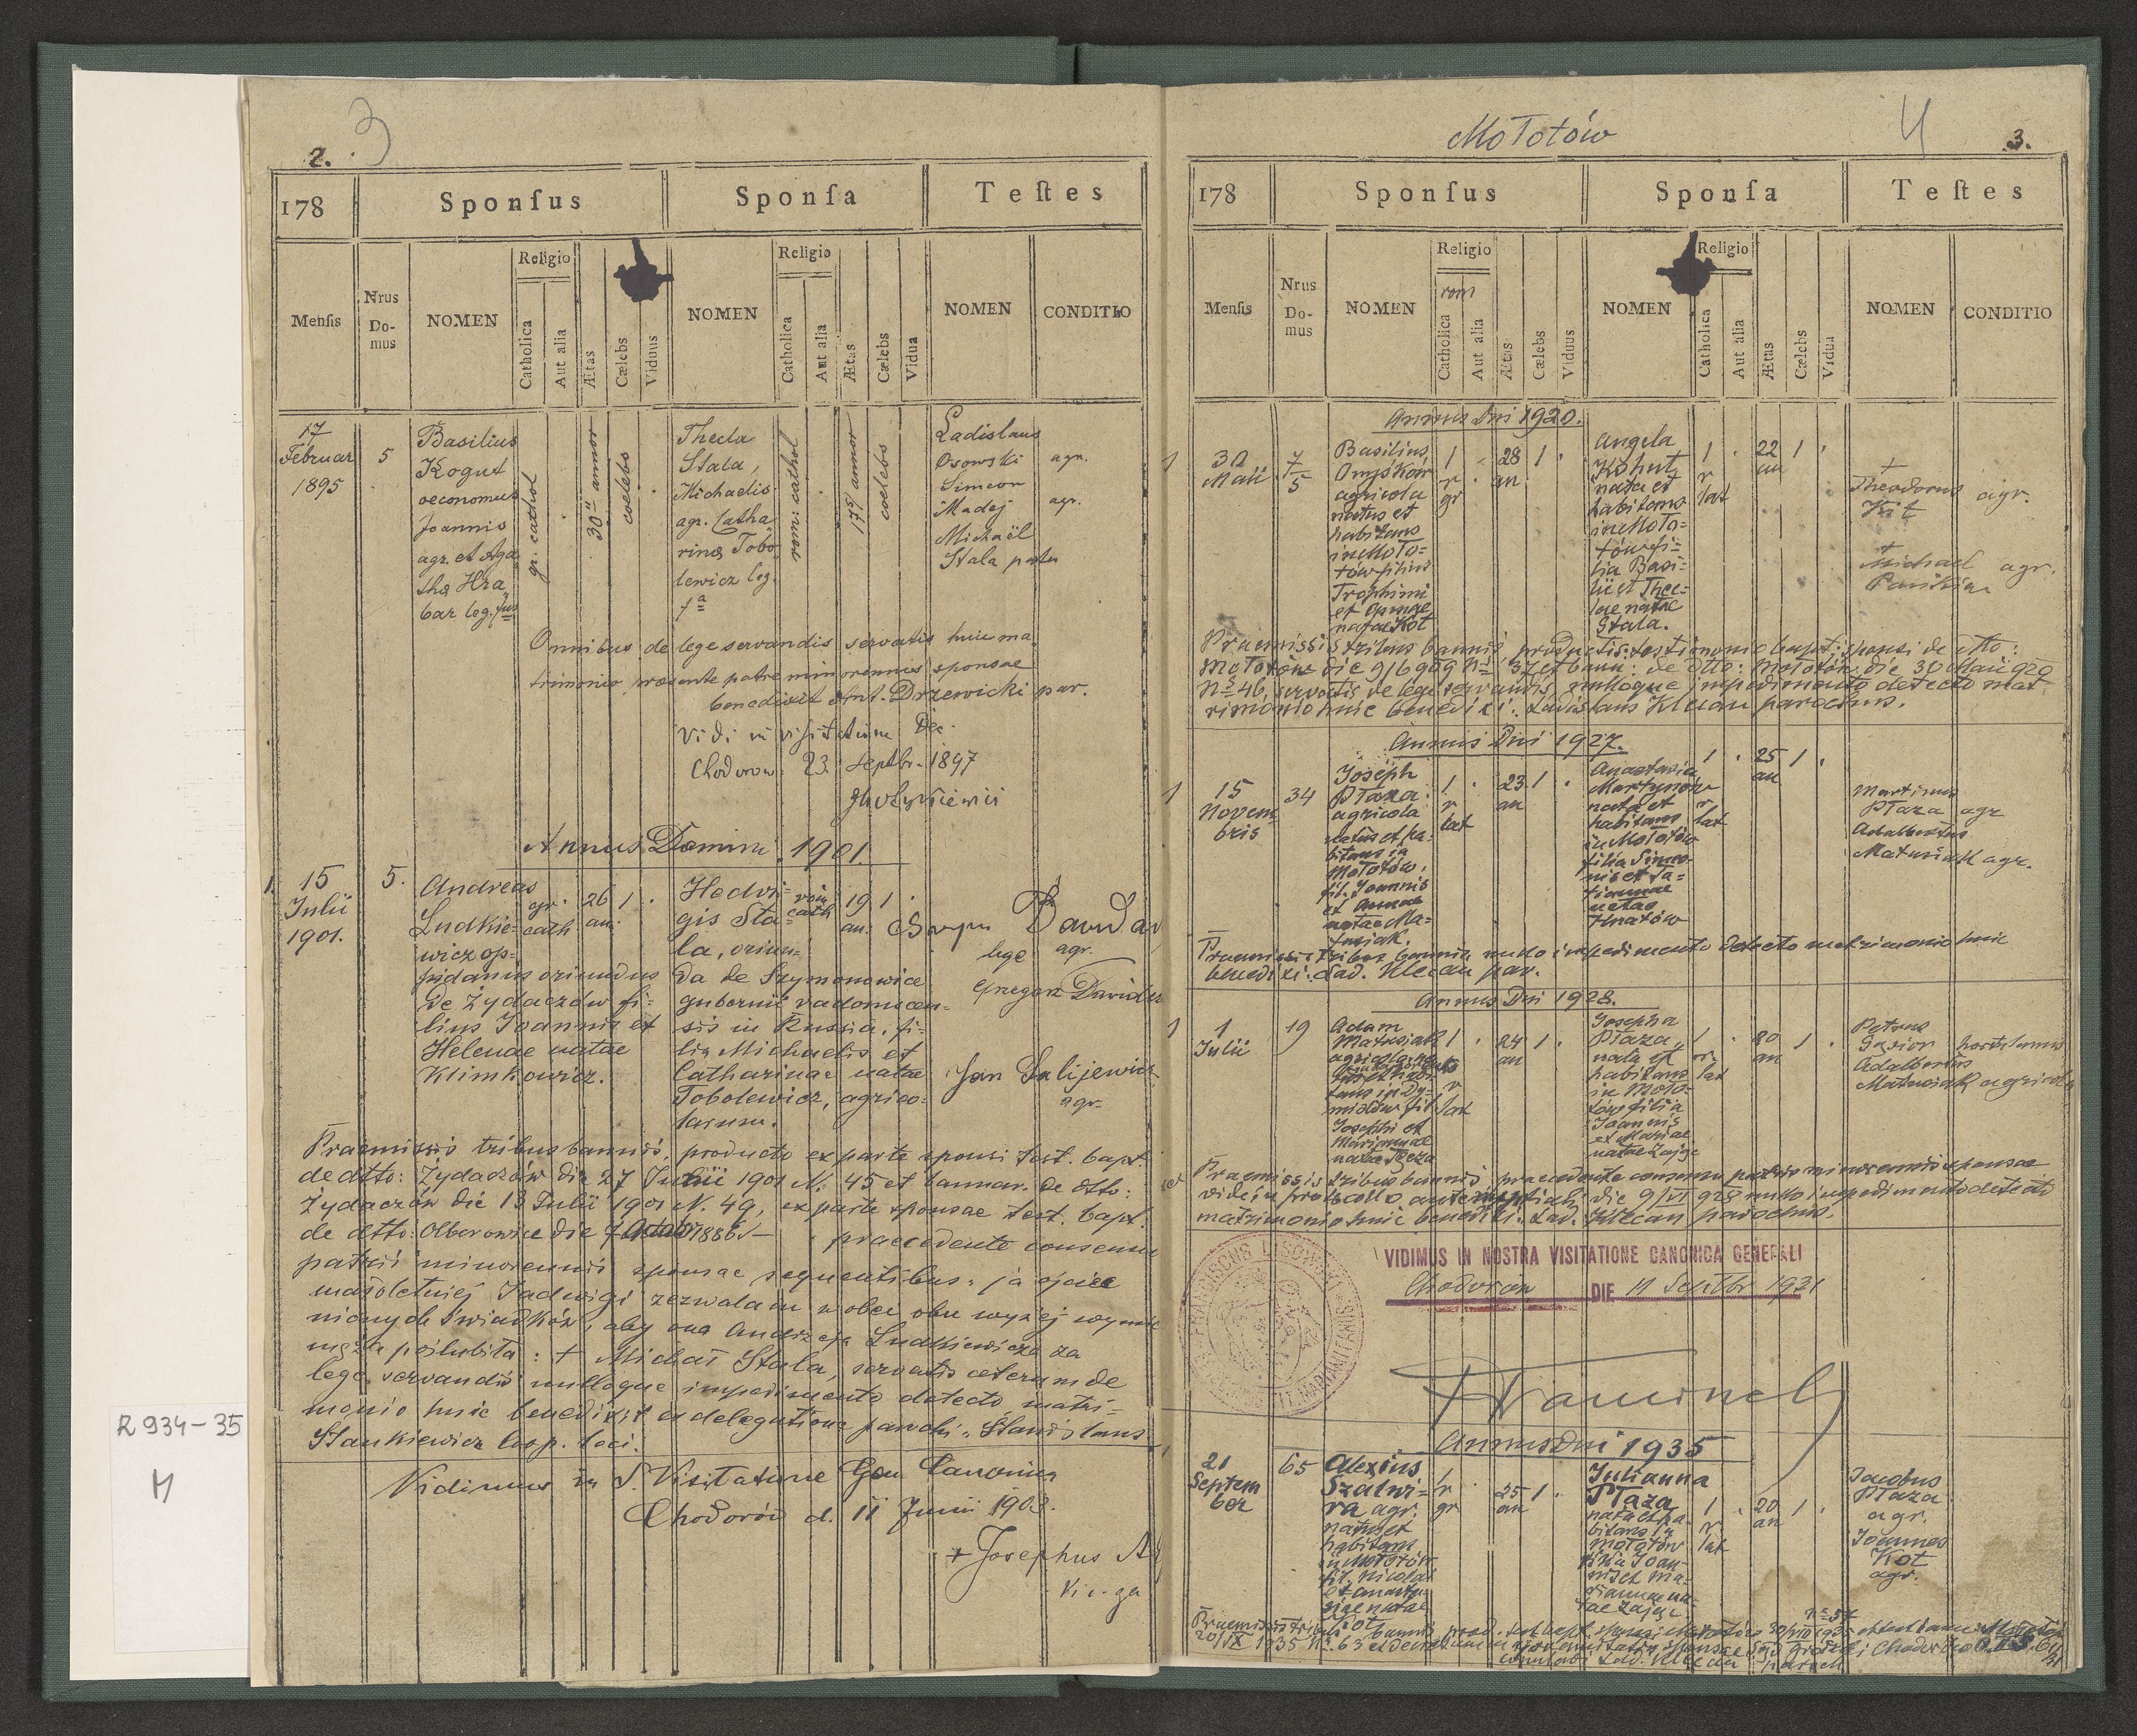 2. 3
178 Sponſus Sponſa Teſtes
Menſis Nrus Do-mus NOMEN Religio Catholica Aut alia Ætas Cælebs Viduus NOMEN Religio Catholica Aut alia Ætas Cælebs Vidua NOMEN CONDITIO
17
Februar
1895
5
Basilius
Kogut
oeconomus
Joannis
agr. et Aga
thæ Hra
bar leg. fus
gr. cathol
30 annor
coelebs
Thecla
Stala,
Michaelis
agr. Catha
rinæ Tobo
lewicz leg.
fa
rom: cathol
17 annor
coelebs
Ladislaus
Osowski agr.
Simeon
Madej agr.
Michaël
Stala pater
Omnibus de lege servandis servatis huic ma
trimonio praesente patre minorennis sponsae
benedixit Ant. Drzewicki par.
Vidi in visitatione Dec.
Chodorow 23. Septbr. 1897
Annus Domini 1901.
1. 15
Julii
1901.
5.
Andreas
Ludkie-
wicz op-
pidanus oriundus
de Żydaczów fi-
lius Joannis et
Helenae natae
Klimkowicz.
gr. cath
26 an.
1
Hedwi-
gis Sta-
la, oriun-
da de Szymonowice
gubernii radomscen-
sis in Russia, fi-
lia Michaelis et
Catharinae natae
Tobolewicz, agrico-
larum.
rom cath
19 an.
1
agr.
Jan Salijewicz
agr.
Praemissis tribus bannis, producto ex parte sponsi test. bapt.
de dtto: Żydaczów die 27 Junii 1901 N. 45 et bannor. de dtto:
Żydaczów die 13 Julii 1901 N. 49, ex parte sponsae test. bapt.
de dtto: Olborowice die 7 1886 praecedente consensu
patris minorennis sponsae sequentibus: ja ojciec
małoletniej Jadwigi zezwalam wobec obu wyżej wymie
nionych świadków, aby ona Andrzeja Ludkiewicza za
męża poślubiła: + Michał Stala, servatis ceterum de
lege servandis nulloque impedimento detecto, matri-
monio huic benedixit ex delegatione parochi Stanislaus
Stankiewicz Coop. loci.
Vidimus in S. Visitatione Gen Canonica
Chodorów d. 11 Junii 1903.
+ Josephus
R 934-35
M
Mołotów
4 3.
178 Sponſus Sponſa Teſtes
Menſis Nrus Do-mus NOMEN Religio rom Catholica Aut alia Ætas Cælebs Viduus NOMEN Religio Catholica Aut alia Ætas Cælebs Vidua NOMEN CONDITIO
Annus Dni 1920.
1 30
Maii
7
5
Basilius
agricola
natus et
habitans
in Moło-
tów filius
Trophimi
et
natae Kot
1 r gr
28 an
1
Angela
Kohut
nata et
habitans
in Moło-
tów fi-
lia Basi-
lii et Thec-
lae natae
Stala.
1 r lat
22 an
1
+
Theodorus
Kit
agr.
+
Michael agr.
Praemissis tribus bannis productis testimonio bapt: sponsi de dtto:
Mołotów die 9/6 909 No 37 et bann: de dtto: Mołotów die 30 Maii 920
No 46, servatis de lege servandis, nulloque impedimento detecto mat
rimonio huic benedixi: Ladislaus Klecan parochus.
Annus Dni 1927.
1 15
Novem
bris
34
Joseph
Płaza
agricola
natus et ha-
bitans in
Mołotów,
fil. Joannis
et Annae
natae Ma-
tusiak.
1 r lat
23 an
1
Anastasia
Martynów
nata et
habitans
in Mołotów
filia Simeo-
nis et Ta-
tiannae
natae
Hnatów
1 r lat
25 an
1
Martinus
Płaza agr
Adalbertus
Matusiak agr.
Praemissis tribus bannis nullo impedimento detecto matrimonio huic
benedixi: Lad. Klecan par.
Annus Dni 1928.
1 1
Julii
19
Adam
Matusiak
agricola
fil
Josephi et
Mariannae
natae
1 r lat
24 an
1
Josepha
Płaza
nata et
habitans
in Moło-
tów filia
Joannis
et Mariae
natae Zając
1 r lat
20 an
1
Petrus
Gazior hortulanus
Adalbertus
Matusiak agricola
Praemissis tribus bannis praecedente consensu patris minorennis sponsae
vide in protocollo antenuptiali die 9/VI 928 nullo impedimento detecto
matrimonio huic benedixi: Lad. Klecan parochus.
VIDIMUS IN NOSTRA VISITATIONE CANONICA GENERALI
Chodorów DIE 11 Septbr 1931
Annus Dni 1935
21
Septem
ber
65
Alexius
Szalwi-
ra agr.
natus et
habitans
in Mołotów
fil. Nicolai
et Anasta-
siae natae
Kot
1 r gr
25 an
1
Julianna
Płaza
nata et ha-
bitans in
Mołotów
filia Joan-
nis et Ma-
riannae na-
tae Zając
1 r lat
20 an
1
Jacobus
Płaza
agr.
Joannes
Kot
agr.